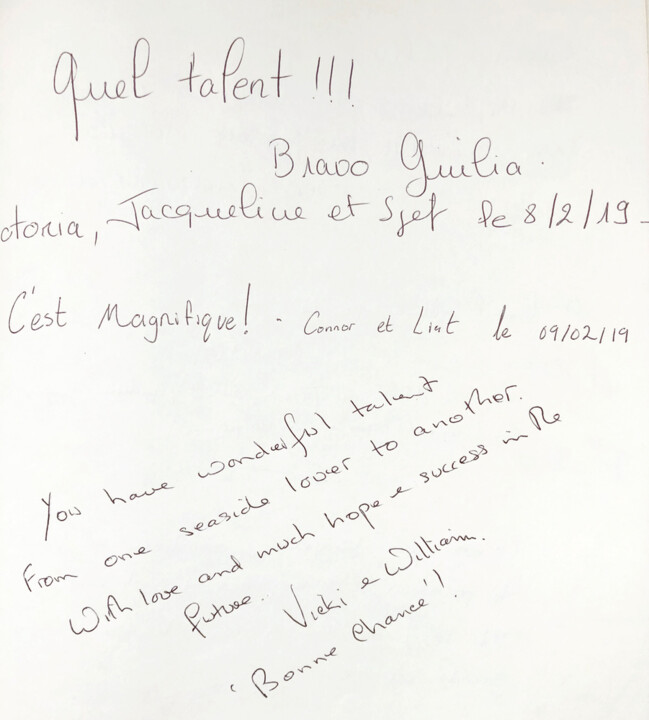 Quel talent !!!
Bravo Giulia.
ctoria, Jacqueline et Sjef le 8/2/19 -
C'est Magnifique! - Connor et Liat le 09/02/19
You have wonderful talent
From one seaside lover to another.
With love and much hope & success in the
future. Vicki & William.
'Bonne Chance'!